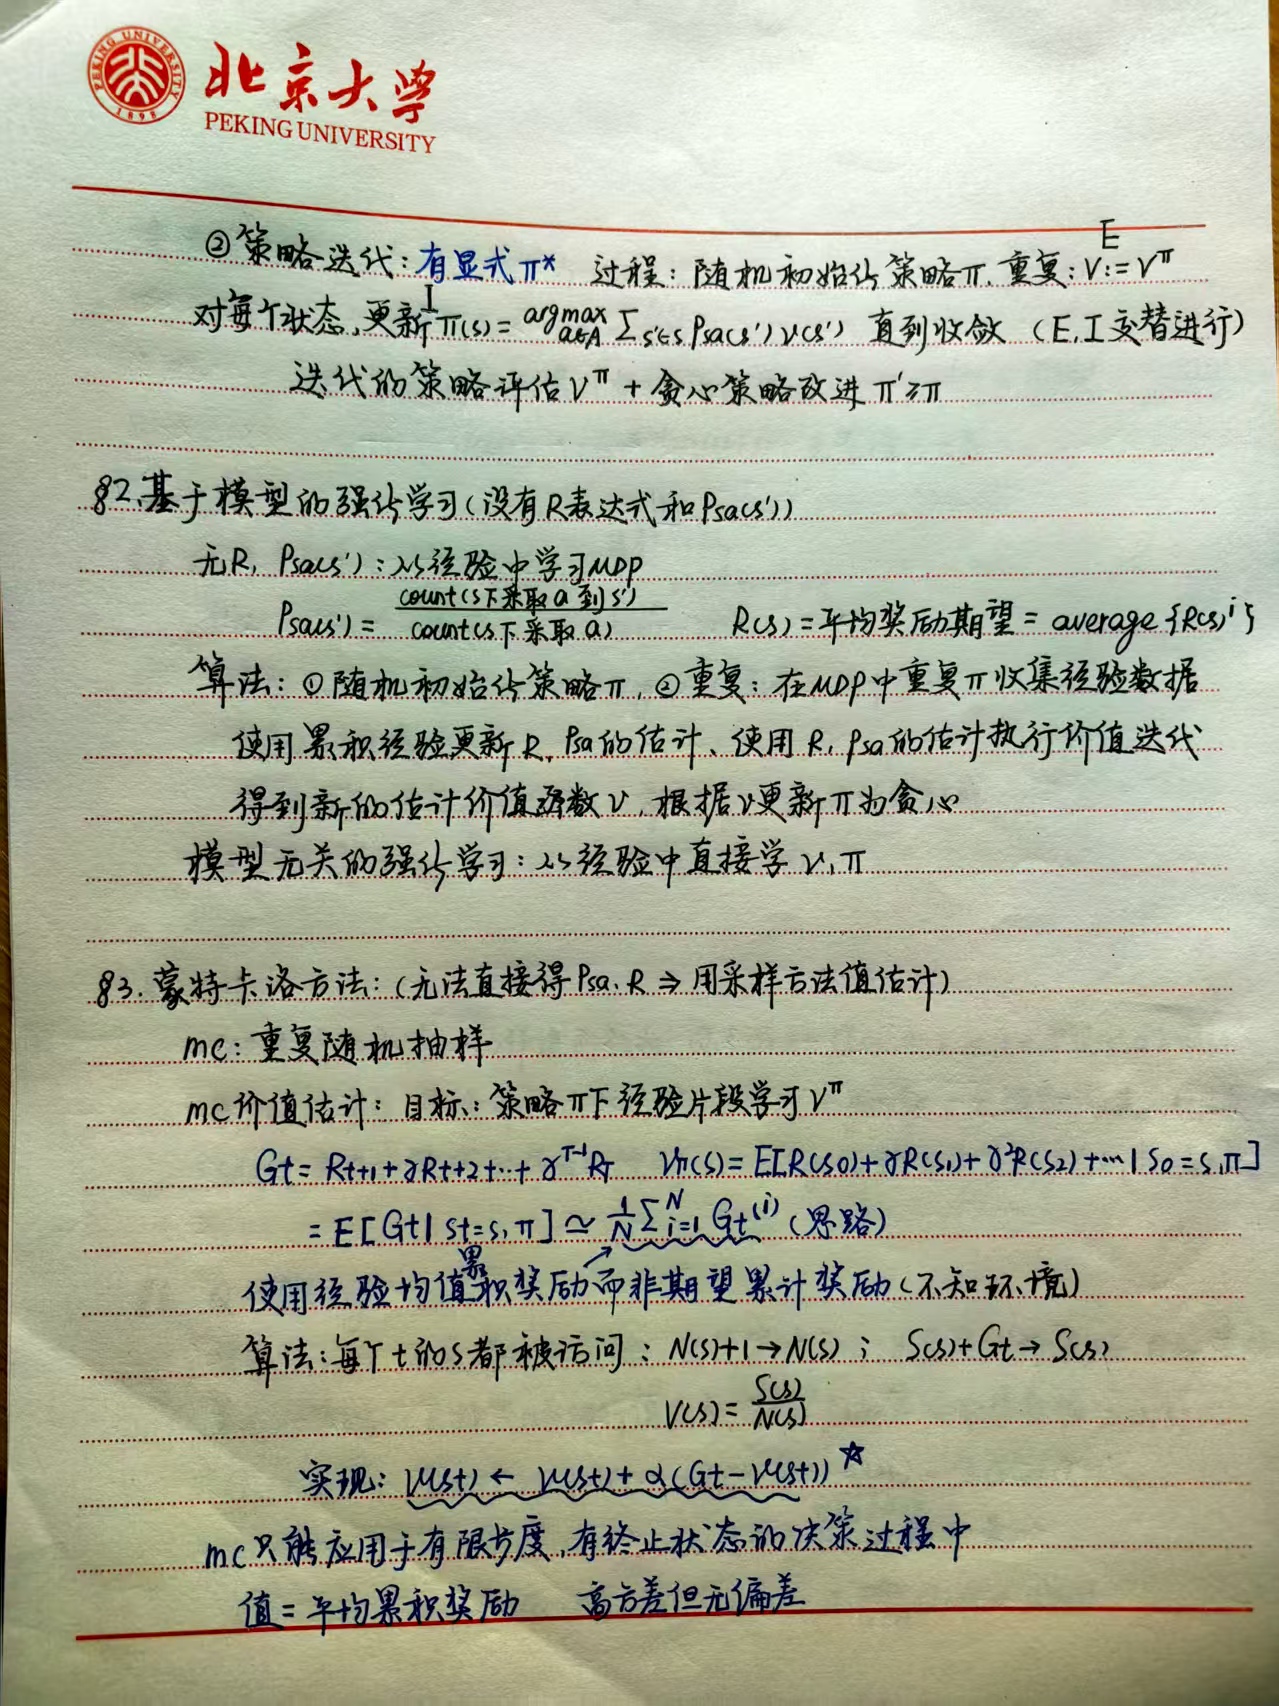 PEKING UNIVERSITY
1898
北京大学
PEKING UNIVERSITY
E
②策略迭代：有显式π* 过程：随机初始化策略π，重复：V:=V^π
I
对每个状态，更新π(s)=argmax a∈A Σs'∈S Psa(s')V(s') 直到收敛（E,I交替进行）
迭代的策略评估V^π + 贪心策略改进 π'≥π
§2.基于模型的强化学习（没有R表达式和Psa(s')）
无R, Psa(s')：从经验中学习MDP
Psa(s')= count(s下采取a到s') / count(s下采取a) R(s)=平均奖励期望=average{R(s)^i}
算法：①随机初始化策略π，②重复：在MDP中重复π收集经验数据
使用累积经验更新R, Psa的估计、使用R, Psa的估计执行价值迭代
得到新的估计价值函数V，根据V更新π为贪心
模型无关的强化学习：从经验中直接学V,π
§3.蒙特卡洛方法：（无法直接得Psa、R⇒用采样方法值估计）
mc：重复随机抽样
mc价值估计：目标：策略π下经验片段学习V^π
Gt=Rt+1+γRt+2+…+γ^T-1 RT Vπ(s)=E[R(s0)+γR(s1)+γ²R(s2)+…|s0=s,π]
=E[Gt|st=s,π]≃ 1/N Σ i=1 N Gt^(i)（思路）
使用经验均值累积奖励而非期望累计奖励（不知环境）
算法：每个t的s都被访问：N(s)+1→N(s)；S(s)+Gt→S(s)
V(s)= S(s)/N(s)
实现：V(st)←V(st)+α(Gt-V(st)) ☆
mc只能应用于有限步度，有终止状态的决策过程中
值=平均累积奖励 高方差但无偏差